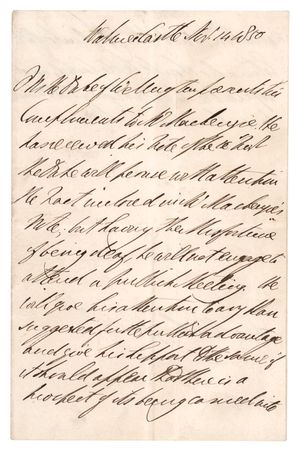 Walmer Castle Nov. 14 1850
F M the Duke of Wellington presents his
Compliments to Mr Mackenzie. He
has received his Note of the
He will peruse with attention
the Tract inclosed in Mr Mackenzie's
Note; but having the Misfortune
of being deaf, he will not engage to
attend a publick Meeting. He
will give his attention to any plan
suggested for the publick advantage
and give his support to the same if
it should appear that there is a
prospect of its being carried into